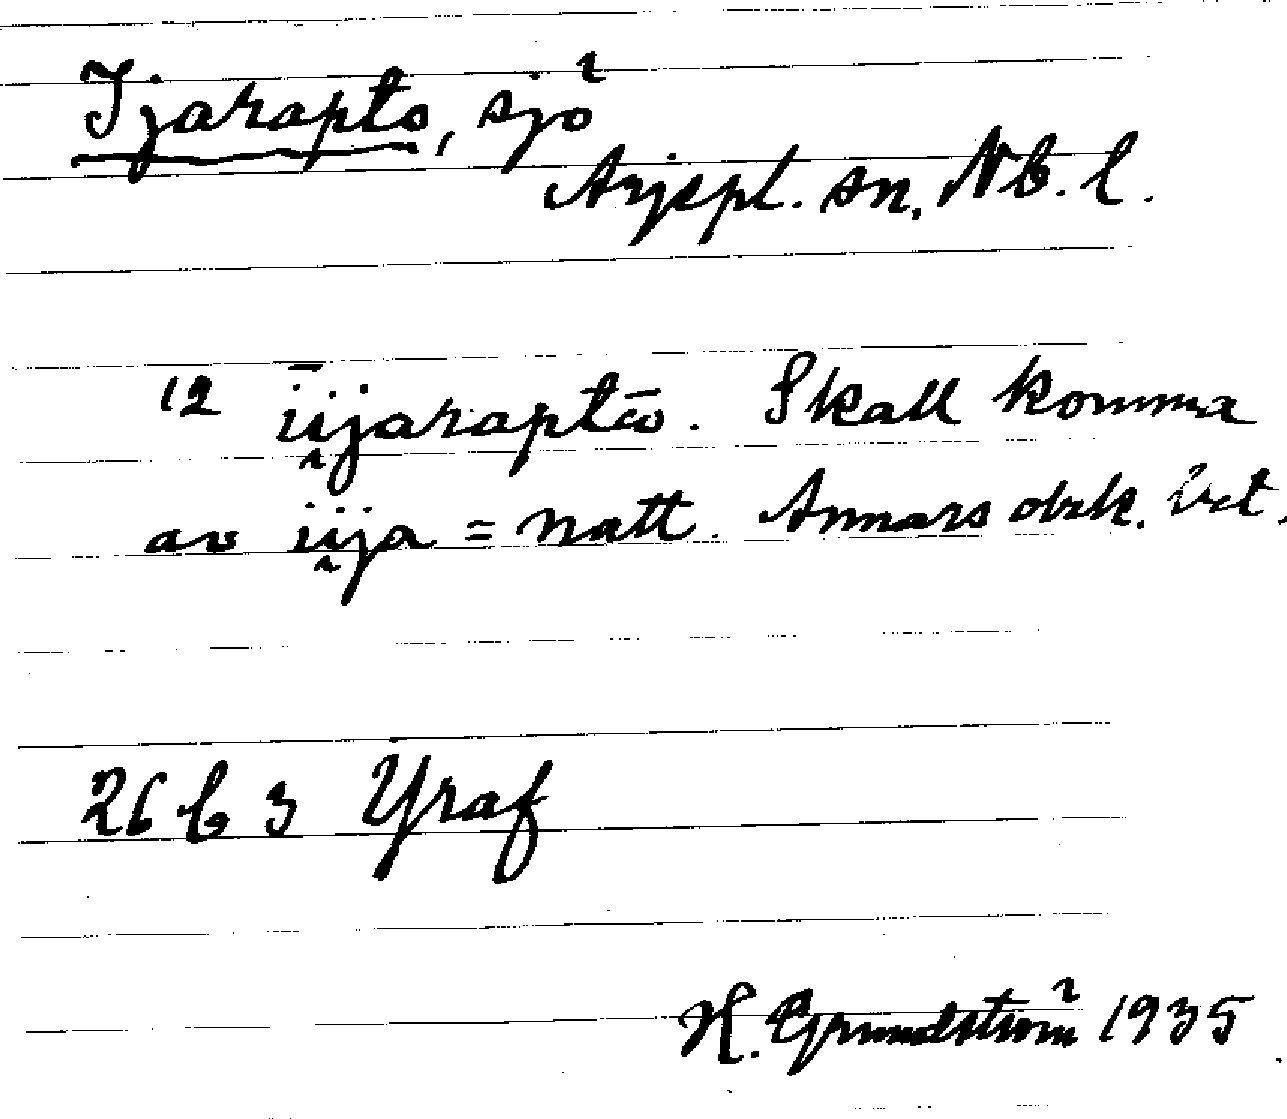 Ijarapto, sjö
Arjepl. sn, Nb. l.
12 i̯ijaraptō. Skall komma
av i̯ija = natt. Annars obek. bet.
26 b 3 Yraf
H. Grundström 1935